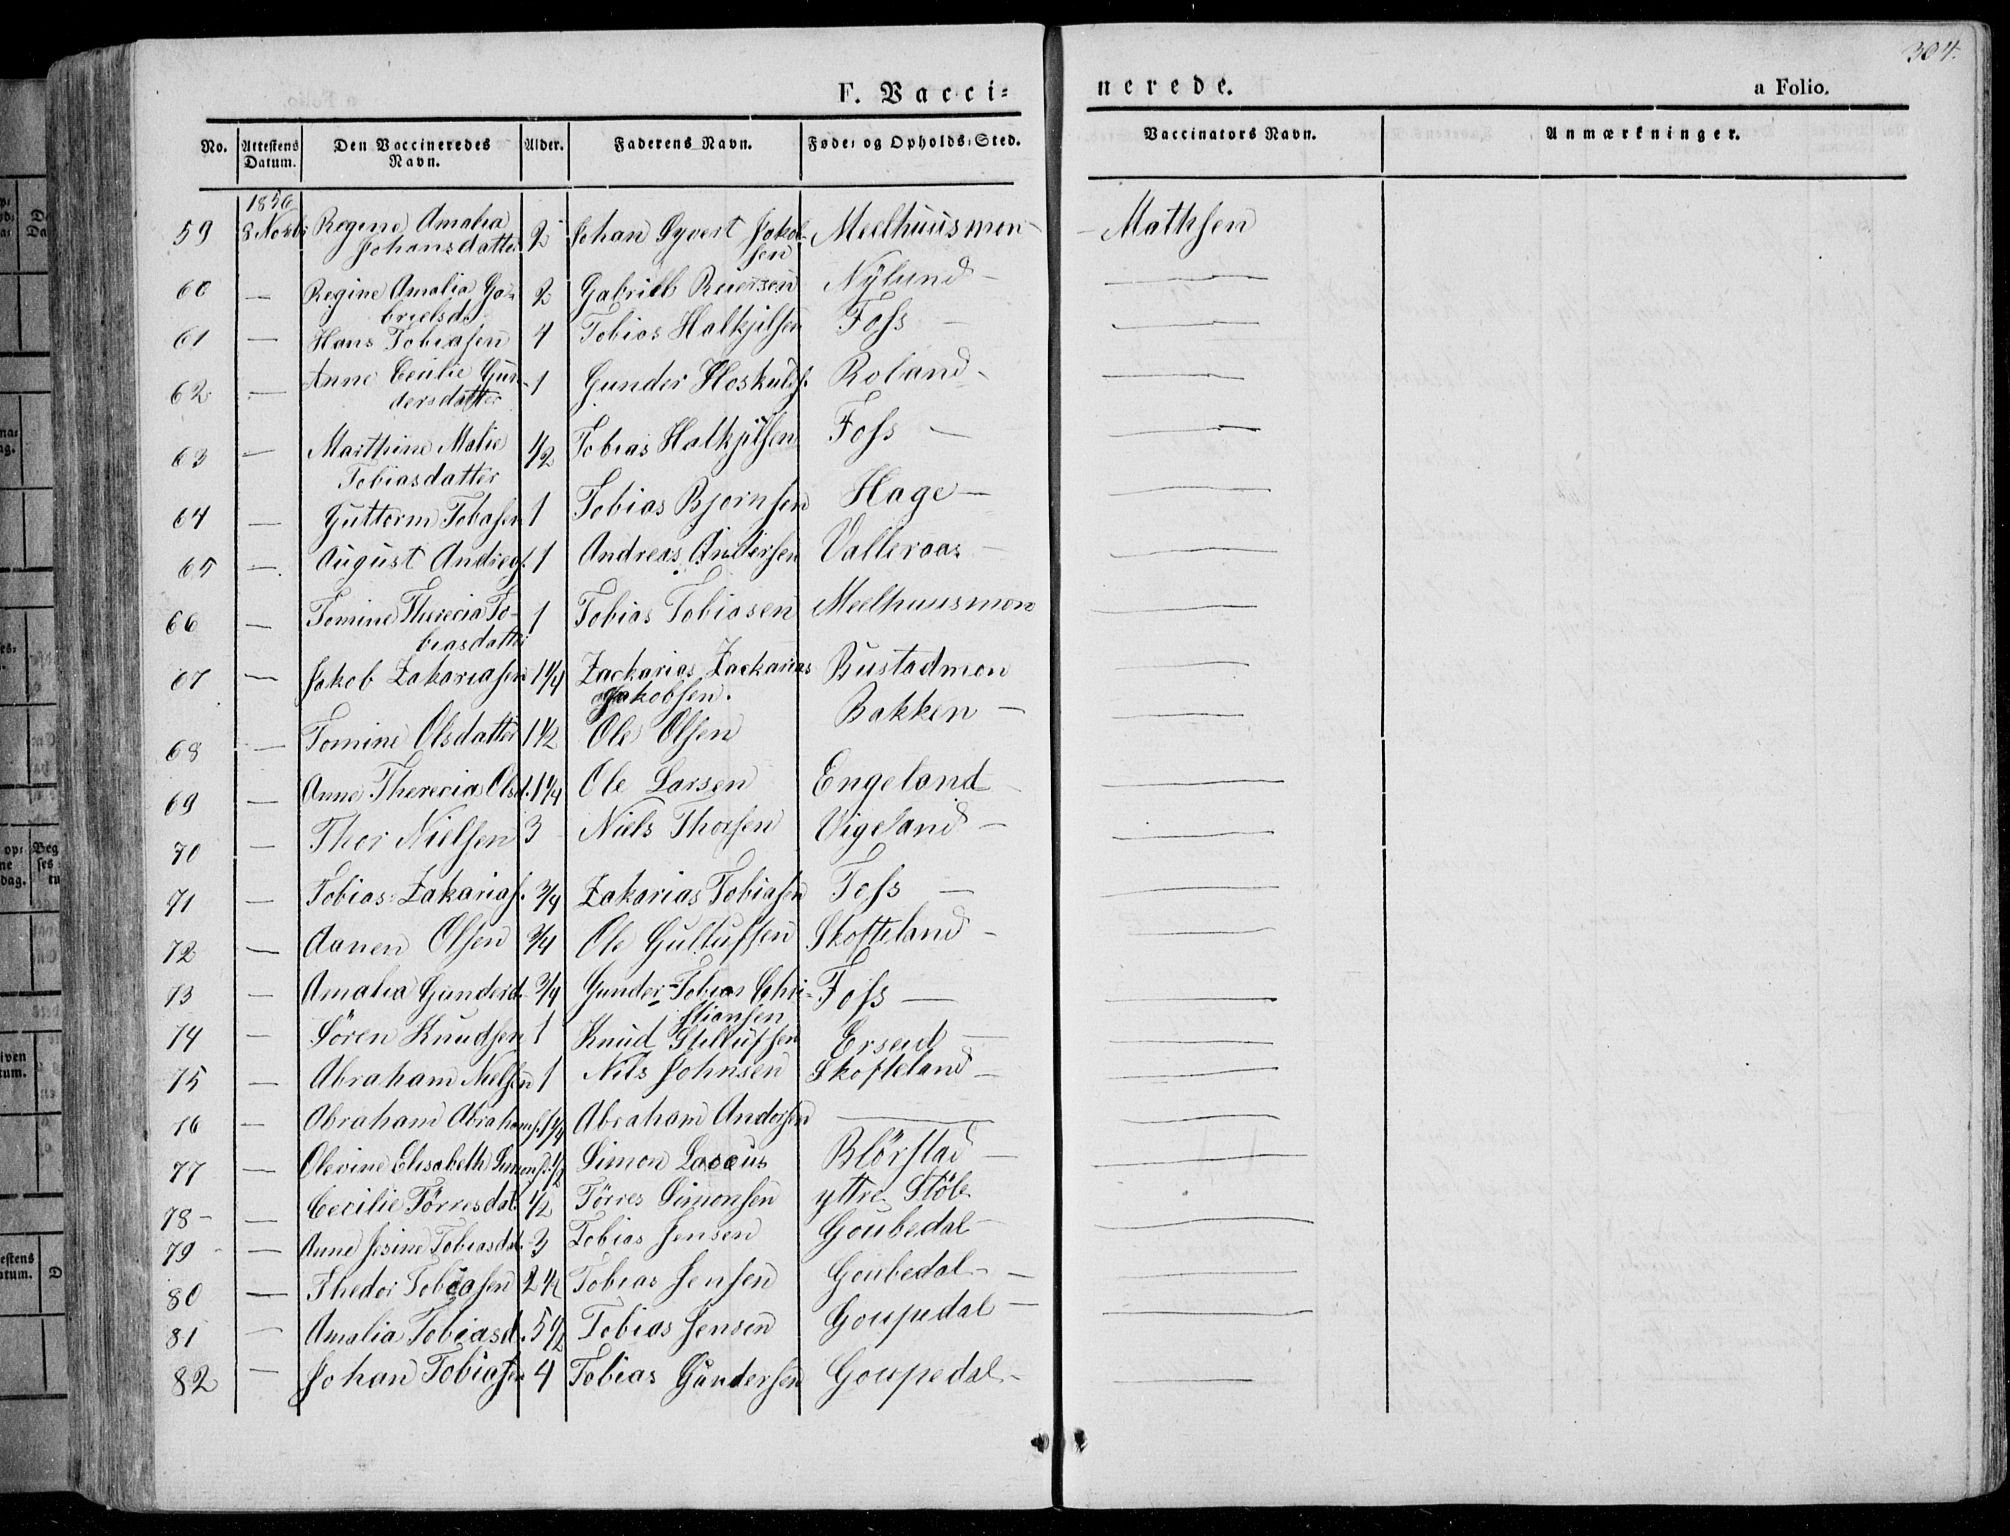 304.
F. Vacci=
nerede.
a Folio.
No.
Attestens Datum.
Den Vaccineredes Navn.
Alder.
Faderens Navn.
Føde- og Opholds-Sted.
Vaccinators Navn.
Anmærkninger.
1856
59 8 Novbr Regine Amalia Johansdatter 2 Johan Syvert Jakobsen Meelhuusmon — Mathsen
60 — Regine Amalia Gabrielsd. 2 Gabriel Reiersen Nylund — —
61 — Hans Tobiasen 4 Tobias Halkjilsen Foss — —
62 — Anne Cecilie Gundersdatter 1 Gunder Hoskulds. Roland — —
63 — Marthine Malie Tobiasdatter 1/2 Tobias Halkjilsen Foss — —
64 — Guttorm Tobasen 1 Tobias Bjornsen Hage — —
65 — August Andreas. 1 Andreas Andersen Valleraas — —
66 — Tomine Therecia Tobiasdatter 1 Tobias Tobiasen Meelhuusmon —
67 — Jakob Zakariasen 1 1/4 Zackarias Zackarias Jakobsen. Bustadmon —
68 — Tomine Olsdatter 1 1/2 Ole Olsen Bakken — —
69 — Anne Therecia Olsd. 1 1/4 Ole Larsen Engeland — —
70 — Thor Nielsen 3 Niels Thorsen Vigeland — —
71 — Tobias Zakarias. 3/4 Zakarias Tobiasen Foss — —
72 — Aanen Olsen 3/4 Ole Gullufsen Skofteland — —
73 — Amalia Gunderd. 3/4 Gunder Tobias Christiansen Foss — —
74 — Sören Knudsen 1 Knud Gullufsen — —
75 — Abraham Nielsen 1 Nils Johnsen Skofteland — —
76 — Abraham Abrahams. 1 1/4 Abraham Andersen — —
77 — Olevine Elisabeth Simonsd. 1/2 Simon Blörstad — —
78 — Cecilie Törresdat. 1/2 Törres Simonsen yttre Stöle —
79 — Anne Josine Tobiasdat. 3 Tobias Jensen Goubedal — —
80 — Thedor Tobiasen 2 1/2 Tobias Jensen Goubedal — —
81 — Amalia Tobiasd. 5 1/2 Tobias Jensen Goupedal — —
82 — Johan Tobiasen 4 Tobias Gundersen Goupedal — —